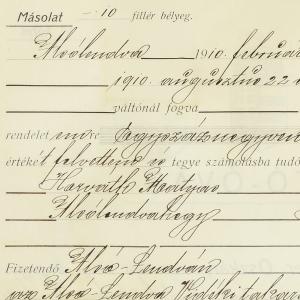 Másolat -10 fillér bélyeg.
Alsólendva 1910. február
1910. augusztus 22
váltónál fogva
rendelet mre Egyszáznegyven
értékét felvettem és tegye számolásba tudó
Horváth Mátyás
Alsólendvahegy
Fizetendő Alsó-Lendván
az Alsó-Lendva Vidéki takar